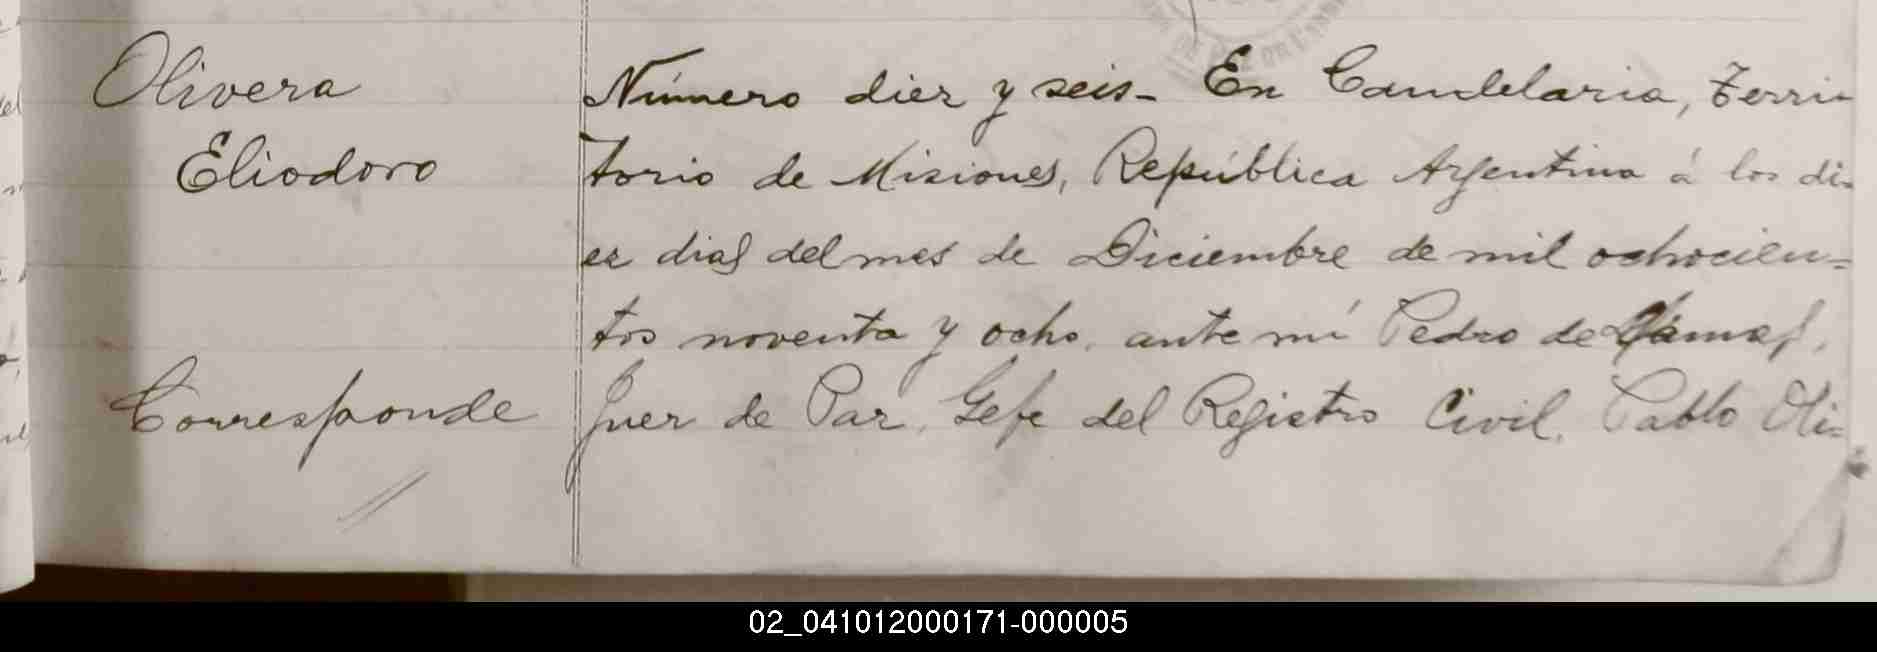 Olivera
Eliodoro
Corresponde
Número diez y seis- En Candelaria, Terri-
torio de Misiones, República Argentina á los di-
ez dias del mes de Diciembre de mil ochocien=
tos noventa y ocho, ante mí Pedro de
Juez de Paz, Gefe del Registro Civil, Pablo Oli=
02_041012000171-000005